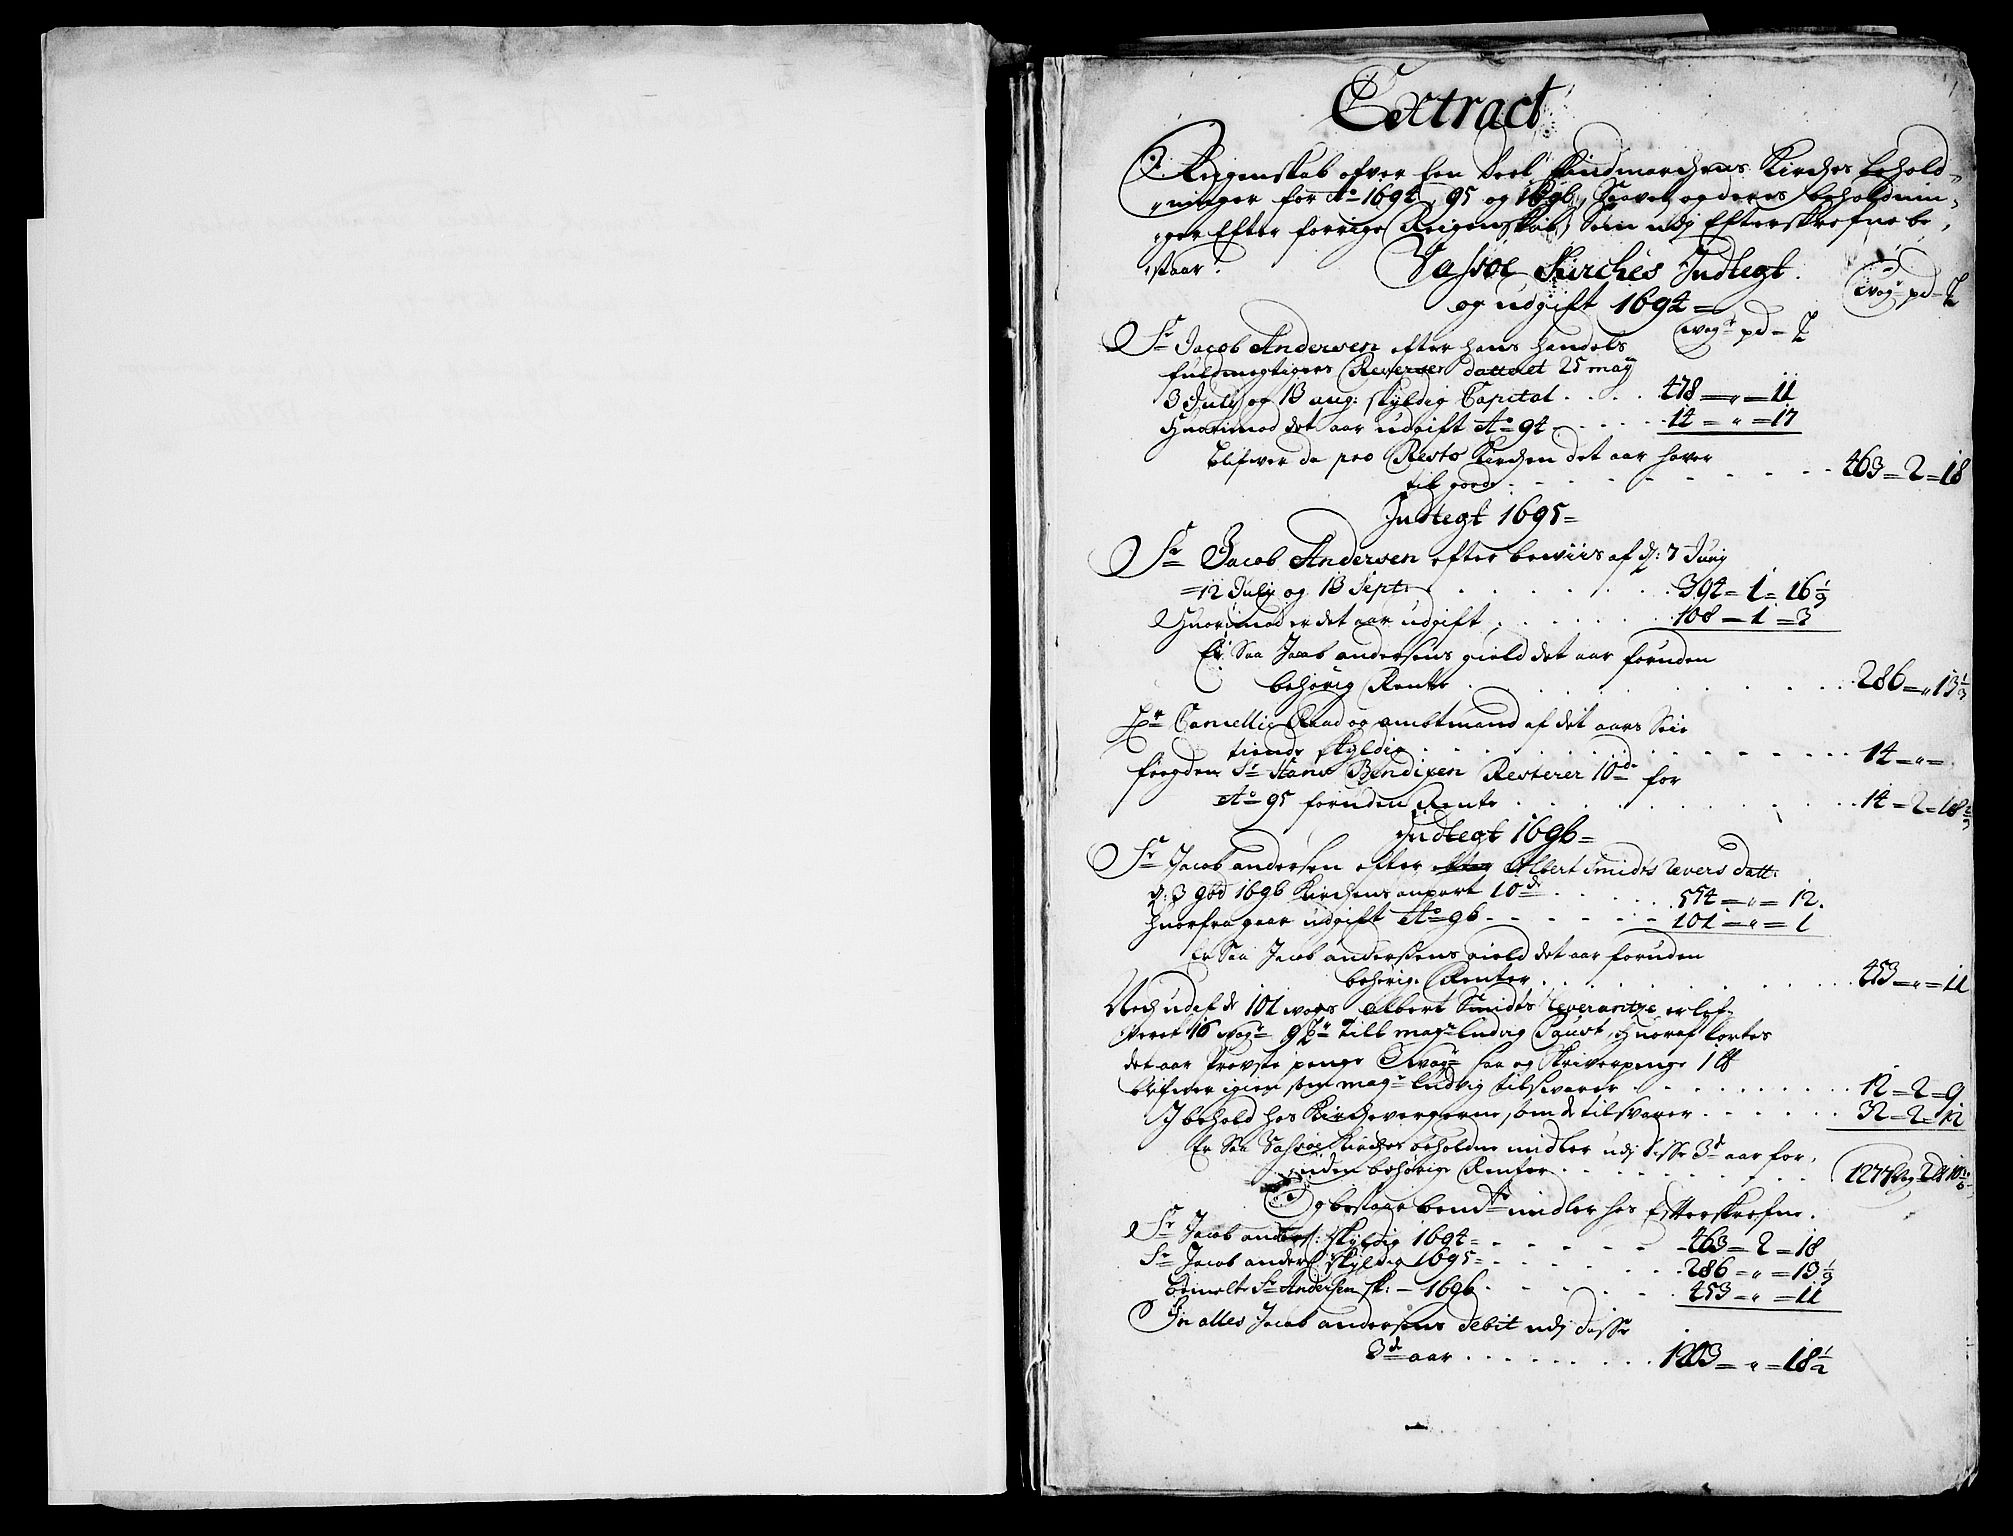 Extract
Reigenskab ofver Een deel Findmarchens Kirches behold-
ninger for Ao 1694, 95 og 1696, Saavel og deres beholdnin-
ger Efter forrige Reigenskab, Som udj Efterskrefne be-
staar.
Vassøe Kirches Indtegt
og udgift 1694=
wog pd=
wog pd=
Sr Jacob Andersen efter hans handels
fuldmegtigers Reverser datteret 25 maij
3 July og 13 aug: skyldig Capital . . . . 478 = " = 11
Huorimod det aar udgift Ao 94 - . . . . 14 = " = 17
blifver da pro Resto Kirchen det aar hafver
til gode . . . . 463 = 2 = 18
Indtegt 1695=
Sr Jacob Andersen efter beviis af d: 7 Junij
12 July og 13 Sept: . . . . 394 = 1 = 16
Huorimod er det aar udgift . . . . 108 = 1 = 3
Er Saa Jacob andersens gield det aar foruden
behørig Rente . . . . 286 = " 13 1/3
Hr Cancellie Raad og ambtmand af det aars Seie
tiende skyldig . . . . 14 = " =
foegden Sr Hans Bendixen Resterer 10de for
Ao 95 foruden Rente . . . . 14 = 2 = 18
Indtegt 1696=
Sr Jacob andersen efter Albert Smidts Revers datt:
d: 3 9bd 1696 Kirchens anpart 10de . . . . 554 = " = 12.
Huorfra gaar udgift Ao 96 - . . . . 101 = " = 1
Er Saa Jacob andersens gield det aar foruden
behørig Renter . . . . 453 = " = 11
Noch udaf de 101 wogs Albert Smidts leverantze er lef-
veret 16 wogr 9 til magr Ludvig Paust, Huoraf kortes
det aar Provste penge 3 wogr faa og Skriverpenge 1
blifver igien som magr Ludvig tilsvarer . . . . 12 = 2 = 9
I behold hos Kirchevergerne, som de tilsvarer . . . . 32 = 2 = 12
Er Saa Vassøe Kirches beholdne midler udj disse 3de aar for-
uden behørige Renter . . . . 1277
Og bestaar bemte midler hos Efterskrefne.
Sr Jacob anders: skyldig 1694= . . . . 463 = 2 = 18
Sr Jacob anders: skyldig 1695= . . . . 286 = " = 13 1/3
bemelte Sr Andersen sk: - 1696 . . . . 453 = " = 11
In alles Jacob andersens debit udj disse
3de aar . . . . 1203 = " = 18 1/2